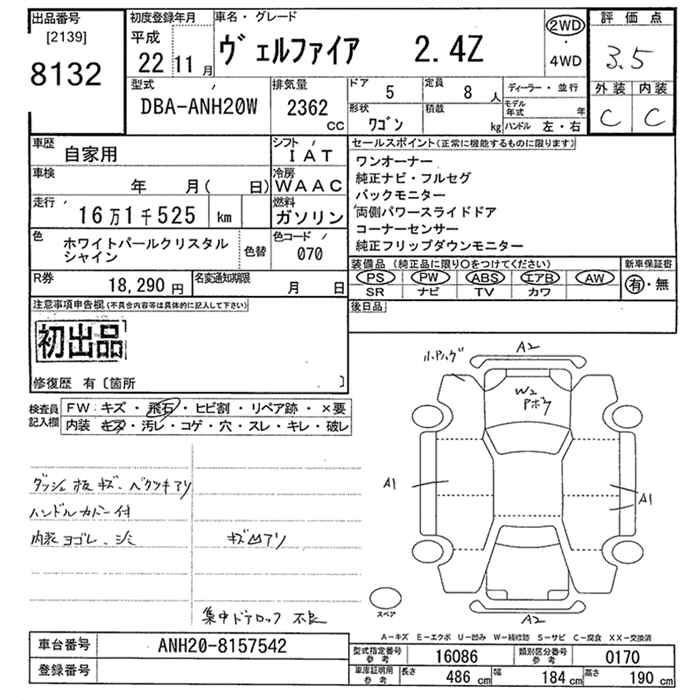 出品番号 [2139] 8132
初度登録年月 平成 22 11月
車名・グレード ヴェルファイア 2.4Z
2WD・4WD
評価点 3.5
外装 内装
C C
型式 DBA-ANH20W
排気量 2362 CC
ドア 5 定員 8人
形状 ワゴン 積載 kg
ディーラー・並行
モデル年式 年
ハンドル 左・右
車歴 自家用
シフト IAT
車検 年 月( 日)
冷房 WAAC
走行 16万1千525 km
燃料 ガソリン
色 ホワイトパールクリスタルシャイン 色替
色コード 070
R券 18,290円
名変通知期限 月 日
セールスポイント(正常に機能するものに限ります)
ワンオーナー
純正ナビ・フルセグ
バックモニター
両側パワースライドドア
コーナーセンサー
純正フリップダウンモニター
装備品 (純正品に限り○をつけてください) 新車保証書
PS PW ABS エアB AW 有・無
SR ナビ TV カワ
後日品
注意事項申告欄(不具合内容等は具体的に記入して下さい)
初出品
修復歴 有〔箇所 〕
検査員記入欄
FW: キズ・飛石・ヒビ割・リペア跡・×要
内装 キズ・汚レ・コゲ・穴・スレ・キレ・破レ
ダッシュ板キズ・ベタツキアリ
ハンドルカバー付
内装ヨゴレ、シミ
キズ凹アリ
集中ドアロック不良
A2
W2
A1
A1
A2
スペア
A-キズ E-エクボ U-凹み W-補修跡 S-サビ C-腐食 XX-交換済
車台番号 ANH20-8157542
登録番号
型式指定番号 参考 16086
類別区分番号 参考 0170
車庫証明用 参考 長さ 486cm 幅 184cm 高さ 190cm